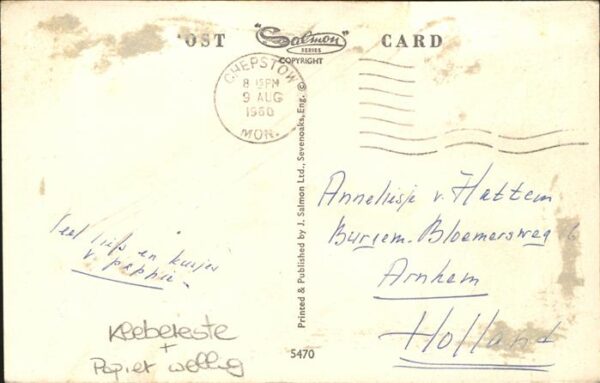 POST CARD
"Salmon"
SERIES
COPYRIGHT
CHEPSTOW
8 15 PM
9 AUG
1960
MON.
Printed & Published by J. Salmon Ltd., Sevenoaks, Eng. ©
Veel liefs en kusjes
v. pappie
Anneliesje v. Hattem
Burgem. Bloemersweg 6
Arnhem
Holland
Klebereste
+
Papier wellig
5470